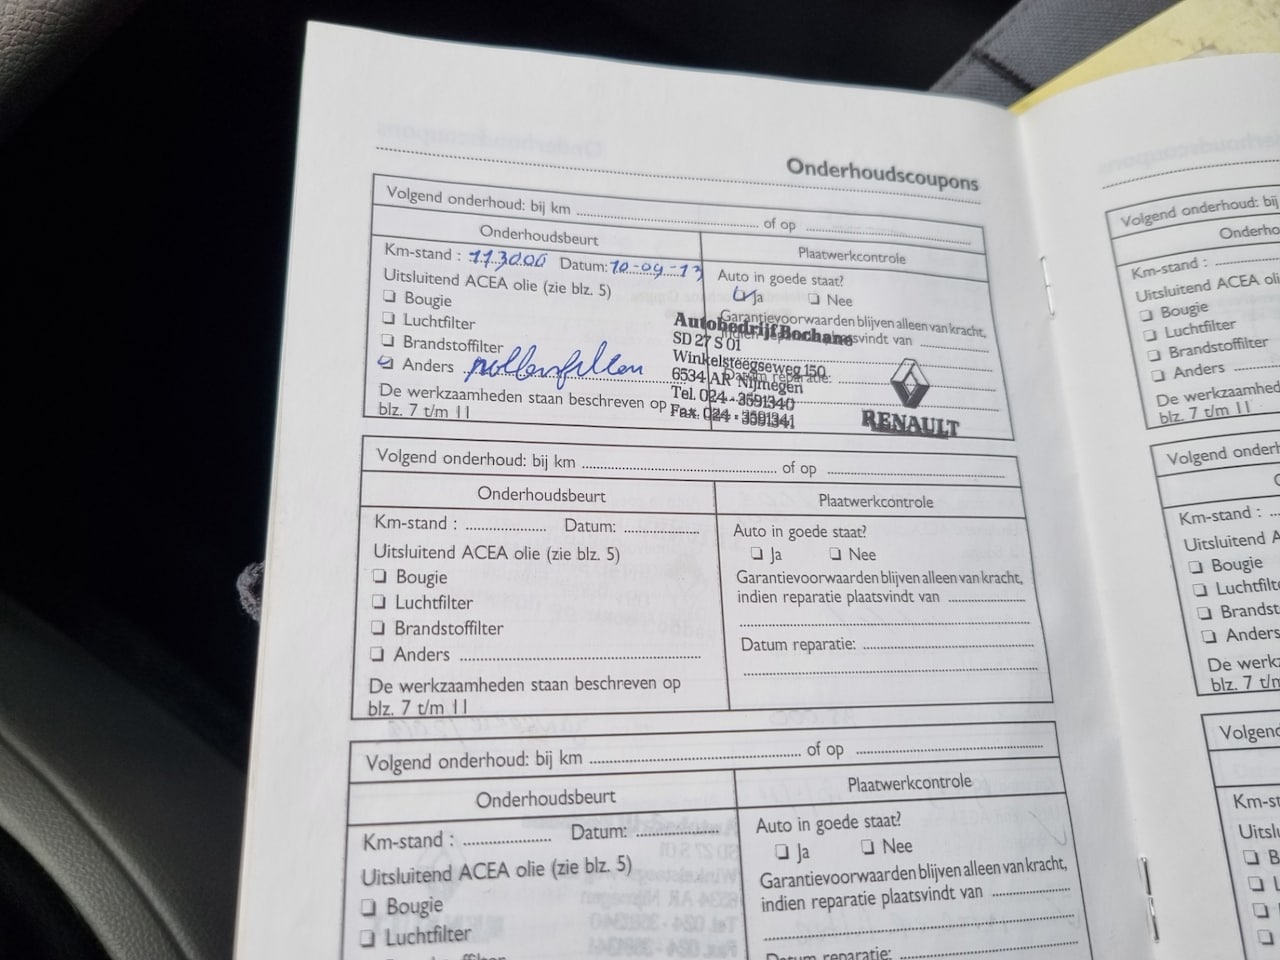 Onderhoudscoupons
Volgend onderhoud: bij km ........ of op ........
Onderhoudsbeurt
Plaatwerkcontrole
Km-stand : 113000 Datum: 10-09-13
Auto in goede staat?
Uitsluitend ACEA olie (zie blz. 5)
Ja Nee
Bougie
Garantievoorwaarden blijven alleen van kracht,
Luchtfilter
indien reparatie plaatsvindt van ........
Brandstoffilter
Anders pollenfilter
Datum reparatie: ........
De werkzaamheden staan beschreven op
blz. 7 t/m 11
Autobedrijf Bochane
SD 27 S 01
Winkelsteegseweg 150
6534 AR Nijmegen
Tel. 024 - 3591340
Fax. 024 - 3591341
RENAULT
Volgend onderhoud: bij km ........ of op ........
Onderhoudsbeurt
Plaatwerkcontrole
Km-stand : ........ Datum: ........
Auto in goede staat?
Uitsluitend ACEA olie (zie blz. 5)
Ja Nee
Bougie
Garantievoorwaarden blijven alleen van kracht,
Luchtfilter
indien reparatie plaatsvindt van ........
Brandstoffilter
Datum reparatie: ........
Anders ........
De werkzaamheden staan beschreven op
blz. 7 t/m 11
Volgend onderhoud: bij km ........ of op ........
Onderhoudsbeurt
Plaatwerkcontrole
Km-stand : ........ Datum: ........
Auto in goede staat?
Uitsluitend ACEA olie (zie blz. 5)
Ja Nee
Bougie
Garantievoorwaarden blijven alleen van kracht,
Luchtfilter
indien reparatie plaatsvindt van ........
Datum reparatie: ........
Volgend onderhoud: bij
Onderho
Km-stand : ........
Uitsluitend ACEA oli
Bougie
Luchtfilter
Brandstoffilter
Anders ........
De werkzaamheden
blz. 7 t/m 11
Volgend onderh
Km-stand : ...
Uitsluitend A
Bougie
Luchtfilt
Brandst
Anders
De werkz
blz. 7 t/m
Volgend
Km-st
Uitslu
B
L